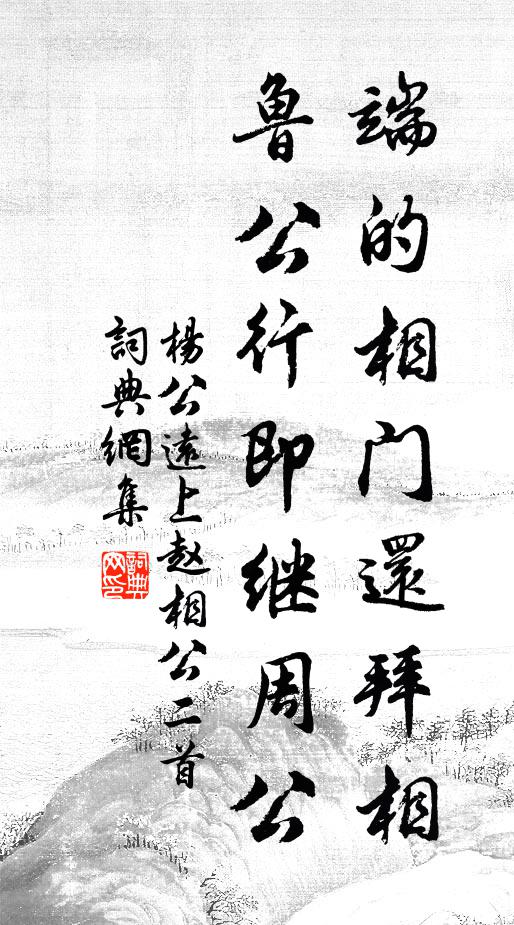 端的相門還拜相
魯公行即继周公
楊公遠上赵相公二首
詞典網集
詞典网印